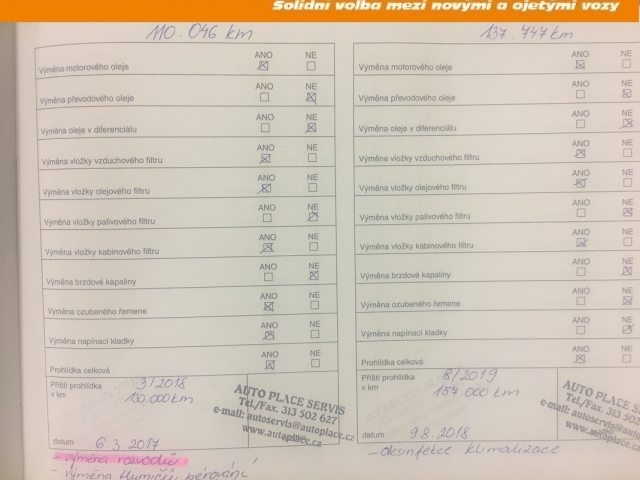 Solidní volba mezi novými a ojetými vozy
110.046 km
ANO NE
Výměna motorového oleje
ANO NE
Výměna převodového oleje
ANO NE
Výměna oleje v diferenciálu
ANO NE
Výměna vložky vzduchového filtru
ANO NE
Výměna vložky olejového filtru
ANO NE
Výměna vložky palivového filtru
ANO NE
Výměna vložky kabinového filtru
ANO NE
Výměna brzdové kapaliny
ANO NE
Výměna ozubeného řemene
ANO NE
Výměna napínací kladky
ANO NE
Prohlídka celková
Příští prohlídka 3/2018
v km 130.000km
AUTO PLACE SERVIS
Tel./Fax. 313 502 627
e-mail: autoservis@autoplace.cz
www.autoplace.cz
datum 6.3 2017
- výměna rozvodů
- výměna tlumičů pérování
137.747km
ANO NE
Výměna motorového oleje
ANO NE
Výměna převodového oleje
ANO NE
Výměna oleje v diferenciálu
ANO NE
Výměna vložky vzduchového filtru
ANO NE
Výměna vložky olejového filtru
ANO NE
Výměna vložky palivového filtru
ANO NE
Výměna vložky kabinového filtru
ANO NE
Výměna brzdové kapaliny
ANO NE
Výměna ozubeného řemene
ANO NE
Výměna napínací kladky
ANO NE
Prohlídka celková
Příští prohlídka 8/2019
v km 157 000 km
AUTO PLA
Tel./Fax.
e-mail: autos
www.a
datum 9.8.2018
- desinfekce klimatizace